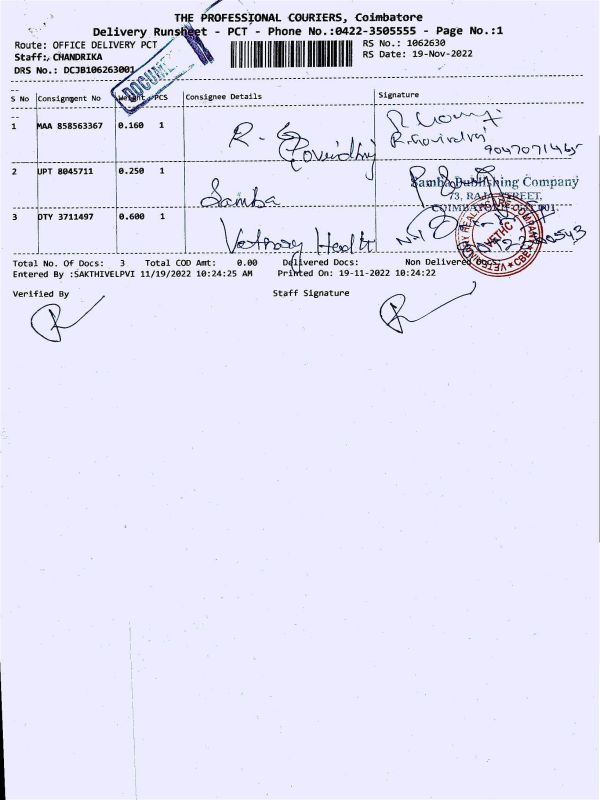 THE PROFESSIONAL COURIERS, Coimbatore
Delivery Runsheet - PCT - Phone No.:0422-3505555 - Page No.:1
Route: OFFICE DELIVERY PCT
RS No.: 1062630
Staff: CHANDRIKA
RS Date: 19-Nov-2022
DRS No.: DCJB106263001
DOCUME
S No Consignment No Weight PCS Consignee Details Signature
1 MAA 858563367 0.160 1 R.
R.Govindraj
9047071465
2 UPT 8045711 0.250 1 Samba
Samba Publishing Company
73, RAJA STREET,
COIMBATORE-641 001.
3 DTY 3711497 0.600 1
Total No. Of Docs: 3 Total COD Amt: 0.00 Delivered Docs: Non Delivered Docs:
Entered By :SAKTHIVELPVI 11/19/2022 10:24:25 AM Printed On: 19-11-2022 10:24:22
Verified By Staff Signature